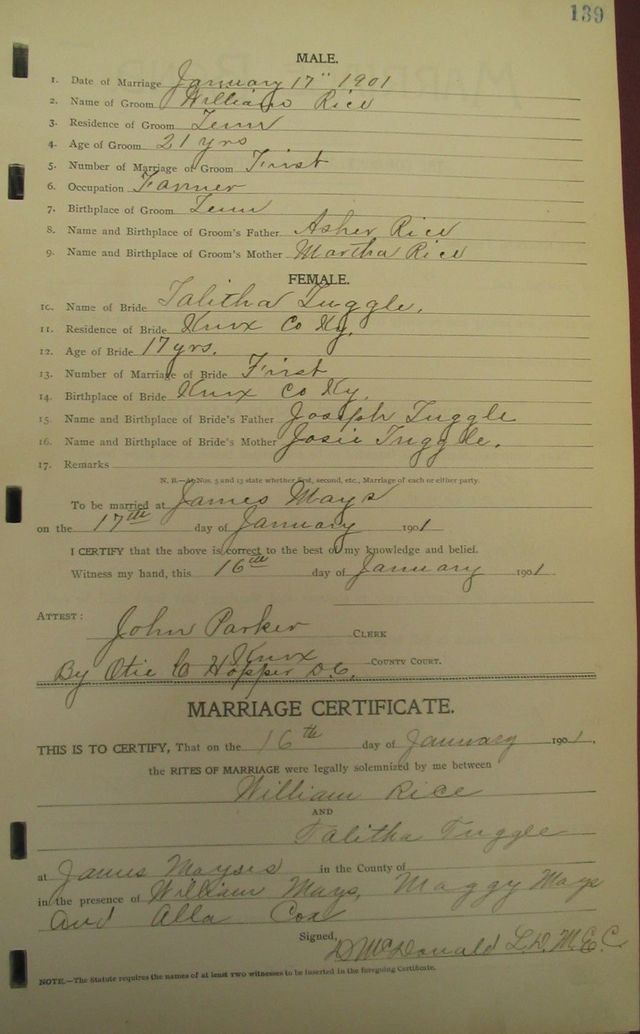 139
MALE.
1. Date of Marriage January 17" 1901
2. Name of Groom William Rice
3. Residence of Groom Tenn
4. Age of Groom 21 yrs
5. Number of Marriage of Groom First
6. Occupation Farmer
7. Birthplace of Groom Tenn
8. Name and Birthplace of Groom's Father Asher Rice
9. Name and Birthplace of Groom's Mother Martha Rice
FEMALE.
10. Name of Bride Talitha Tuggle.
11. Residence of Bride Knox Co Ky.
12. Age of Bride 17 yrs.
13. Number of Marriage of Bride First
14. Birthplace of Bride Knox Co Ky.
15. Name and Birthplace of Bride's Father Joseph Tuggle
16. Name and Birthplace of Bride's Mother Josie Tuggle.
17. Remarks
N. B.—At Nos. 5 and 13 state whether first, second, etc., Marriage of each or either party.
To be married at James Mays
on the 17th day of January 1901
I CERTIFY that the above is correct to the best of my knowledge and belief.
Witness my hand, this 16th day of January 1901
ATTEST:
John Parker CLERK
Knox COUNTY COURT.
By Otie C Hopper D.C.
MARRIAGE CERTIFICATE.
THIS IS TO CERTIFY, That on the 16th day of January 1901.
the RITES OF MARRIAGE were legally solemnized by me between
William Rice
AND
Talitha Tuggle
at James Mayses in the County of
in the presence of William Mays, Maggy Mays
and Alla Cox
Signed, D McDonald L.D. M.E.C.
NOTE.—The Statute requires the names of at least two witnesses to be inserted in the foregoing Certificate.